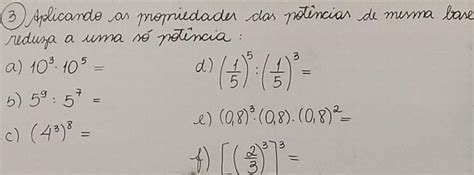 3) Aplicando as propriedades das potências de mesma base
reduza a uma só potência :
a) 10³ · 10⁵ =
b) 5⁹ : 5⁷ =
c) (4³)⁸ =
d) (1/5)⁵ : (1/5)³ =
e) (0,8)³ · (0,8) · (0,8)² =
f) [(2/3)³]³ =